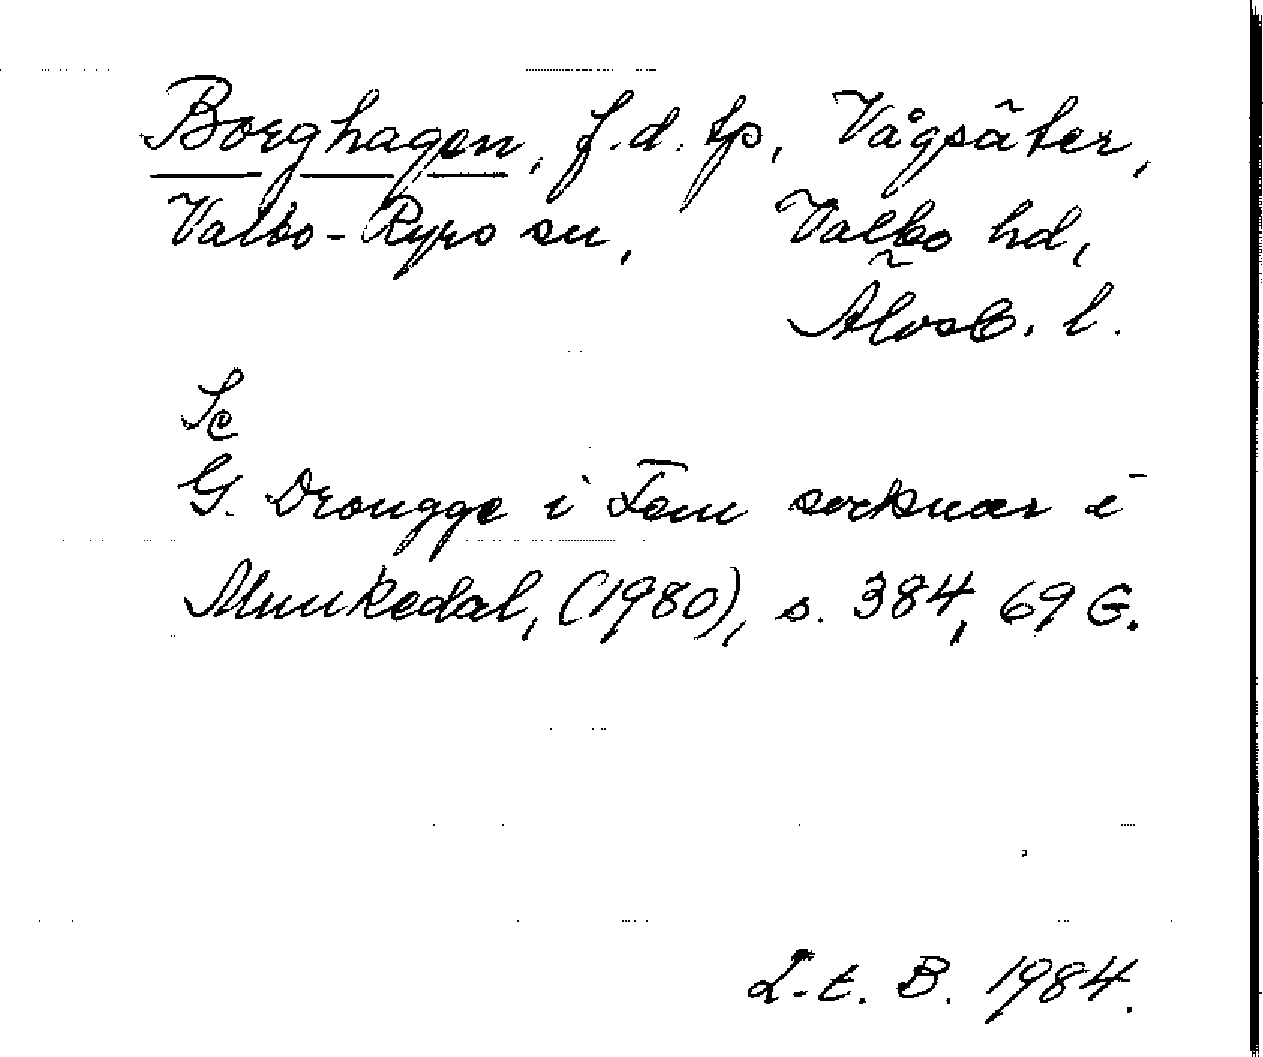 Borghagen, f.d. tp, Vågsäter,
Valbo-Ryrs sn, Valbo hd,
Älvsb. l.
Se
G. Drougge i Fem socknar i
Munkedal, (1980), s. 384, 69 G.
L-t. B. 1984.